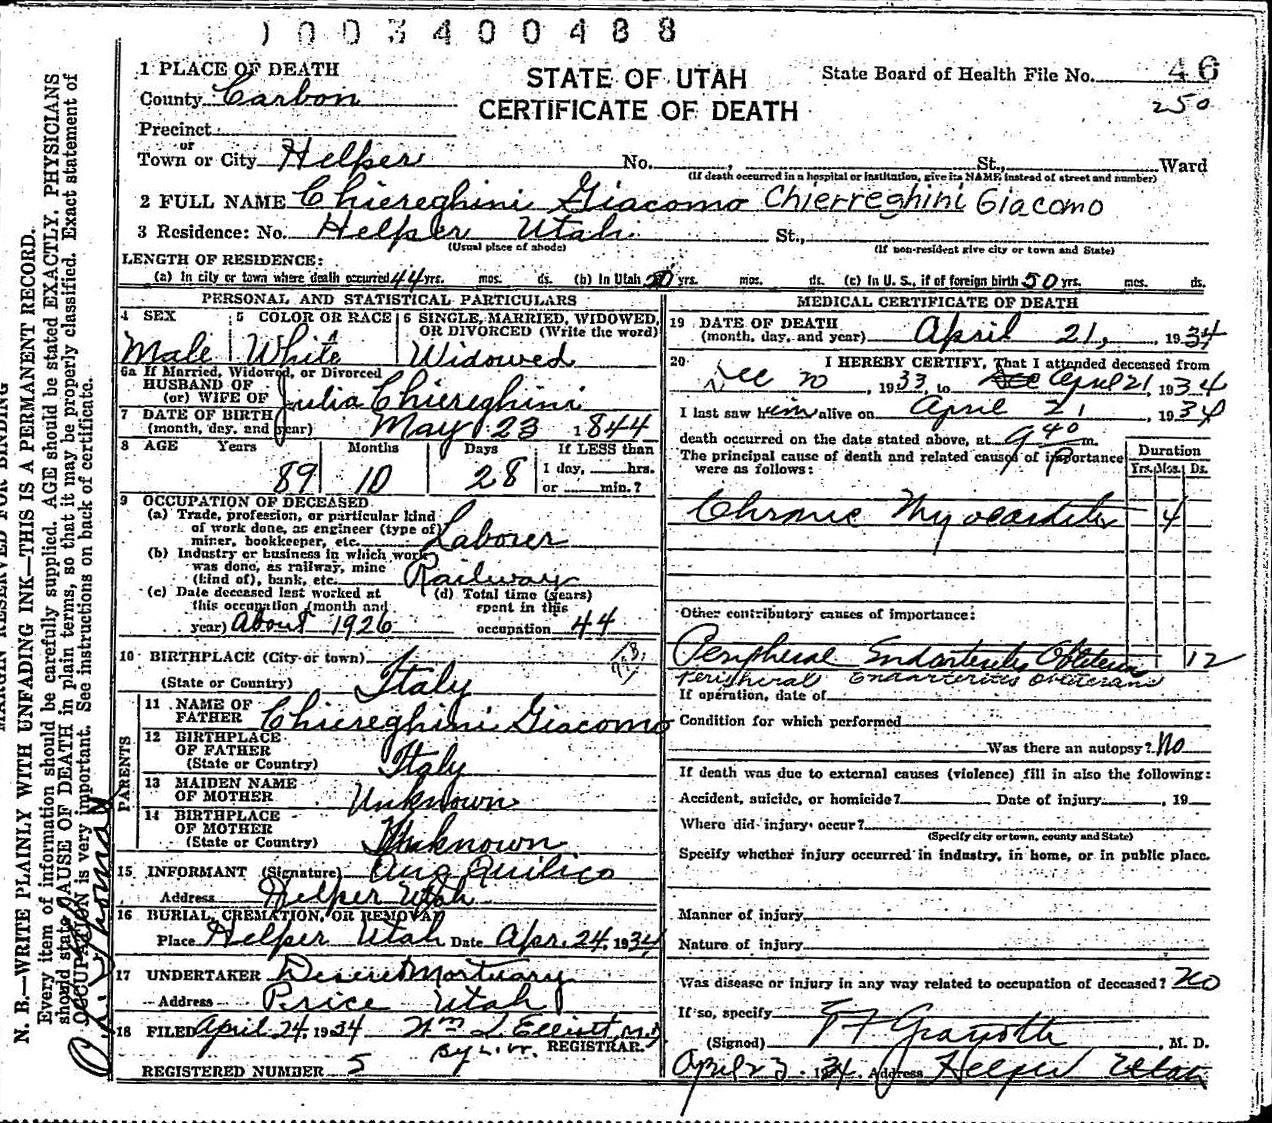 1003400488
1 PLACE OF DEATH
STATE OF UTAH
CERTIFICATE OF DEATH
State Board of Health File No. 46
250
County Carbon
Precinct
or
Town or City Helper No. , St., Ward
(If death occurred in a hospital or institution, give its NAME instead of street and number)
2 FULL NAME Chiereghini Giacomo Chierreghini Giacomo
3 Residence: No. Helper Utah St.,
(Usual place of abode) (If non-resident give city or town and State)
LENGTH OF RESIDENCE:
(a) In city or town where death occurred 44 yrs. mos. ds. (b) In Utah 50 yrs. mos. ds. (c) In U. S., if of foreign birth 50 yrs. mos. ds.
PERSONAL AND STATISTICAL PARTICULARS
4 SEX 5 COLOR OR RACE 6 SINGLE, MARRIED, WIDOWED, OR DIVORCED (Write the word)
Male White Widowed
6a If Married, Widowed, or Divorced
HUSBAND OF
(or) WIFE OF Julia Chiereghini
7 DATE OF BIRTH
(month, day, and year) May 23 1844
8 AGE Years Months Days If LESS than
1 day, hrs.
89 10 28 or min.?
9 OCCUPATION OF DECEASED
(a) Trade, profession, or particular kind
of work done, as engineer (type of)
miner, bookkeeper, etc. Laborer
(b) Industry or business in which work
was done, as railway, mine
(kind of), bank, etc. Railway
(c) Date deceased last worked at
this occupation (month and
year) About 1926
(d) Total time (years)
spent in this
occupation 44
10 BIRTHPLACE (City or town)
(State or Country) Italy
PARENTS
11 NAME OF
FATHER Chiereghini Giacomo
12 BIRTHPLACE
OF FATHER
(State or Country) Italy
13 MAIDEN NAME
OF MOTHER Unknown
14 BIRTHPLACE
OF MOTHER
(State or Country) Unknown
15 INFORMANT (Signature) Aug Quilico
Address Helper Utah
16 BURIAL, CREMATION, OR REMOVAL
Place Helper Utah Date Apr. 24, 1934
17 UNDERTAKER Deseret Mortuary
Address Price Utah
18 FILED April 24, 1934 Wm L. Elliott, M.D.
By L. W. REGISTRAR.
REGISTERED NUMBER 5
MEDICAL CERTIFICATE OF DEATH
19 DATE OF DEATH
(month, day, and year) April 21, 1934
20 I HEREBY CERTIFY, That I attended deceased from
Dec 20, 1933, to Dec April 21, 1934
I last saw him alive on April 21, 1934
death occurred on the date stated above, at 9 40 P m.
The principal cause of death and related causes of importance
were as follows:
Duration
Yrs. Mos. Ds.
Chronic Myocarditis 4
Other contributory causes of importance:
Peripheral Endarteritis Obliterans 12
Peripheral Endarteritis Obliterans
If operation, date of
Condition for which performed
Was there an autopsy? No
If death was due to external causes (violence) fill in also the following:
Accident, suicide, or homicide? Date of injury , 19
Where did injury occur?
(Specify city or town, county and State)
Specify whether injury occurred in industry, in home, or in public place.
Manner of injury
Nature of injury
Was disease or injury in any way related to occupation of deceased? No
If so, specify
(Signed) , M. D.
April 23, 1934. Address Helper Utah
MARGIN RESERVED FOR BINDING
N. B.—WRITE PLAINLY WITH UNFADING INK—THIS IS A PERMANENT RECORD.
Every item of information should be carefully supplied. AGE should be stated EXACTLY. PHYSICIANS
should state CAUSE OF DEATH in plain terms, so that it may be properly classified. Exact statement of
OCCUPATION is very important. See instructions on back of certificate.